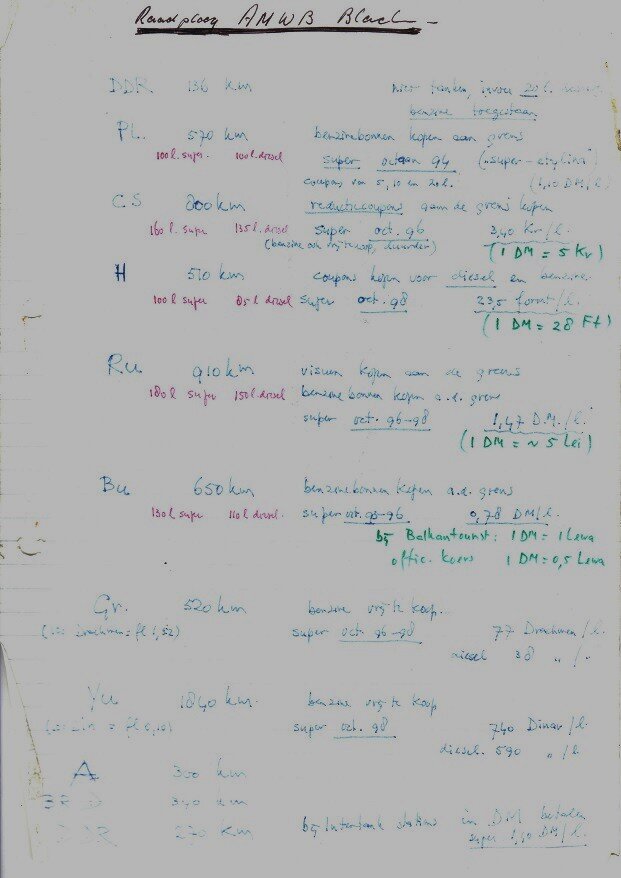 Raadpleeg AMWB Blad
DDR 156 km niet tanken, invoer 20 l.
benzine toegestaan
PL. 570 km benzinebonnen kopen aan grens
100 l. super. 100 l. diesel super octaan 94 ("super-etylina"
coupons van 5, 10 en 20 l. (1,10 DM/l)
C.S 800 km reductiecoupons aan de grens kopen
160 l. super 135 l. diesel super oct. 96 3,40 Kr/l.
(benzine ook vrij te koop, duurder) (1 DM = 5 Kr)
H 510 km coupons kopen voor diesel en benzine.
100 l super 85 l diesel super oct. 98 23,5 forint/l.
(1 DM = 28 Ft)
Ru 910 km visum kopen aan de grens
180 l super 150 l diesel benzinebonnen kopen a.d. grens
super oct. 96-98 1,47 D.M./l.
(1 DM = ~ 5 Lei)
Bu 650 km benzinebonnen kopen a.d. grens
130 l super 110 l diesel. super oct. 93-96 0,78 DM/l.
bij Balkantourist: 1 DM = 1 Lewa
offic. koers 1 DM = 0,5 Lewa
Gr. 520 km benzine vrij te koop.
(100 Drachmen = fl 1,52) super oct 96-98 77 Drachmen/l.
diesel 38 " /"
Yu 1840 km. benzine vrij te koop
= fl 0,10) super oct. 98 740 Dinar/l.
diesel. 590 " /l
A 300 km
BRD 340 km
DDR 270 km bij Intertank stations in DM betalen
super 1,40 DM/l.